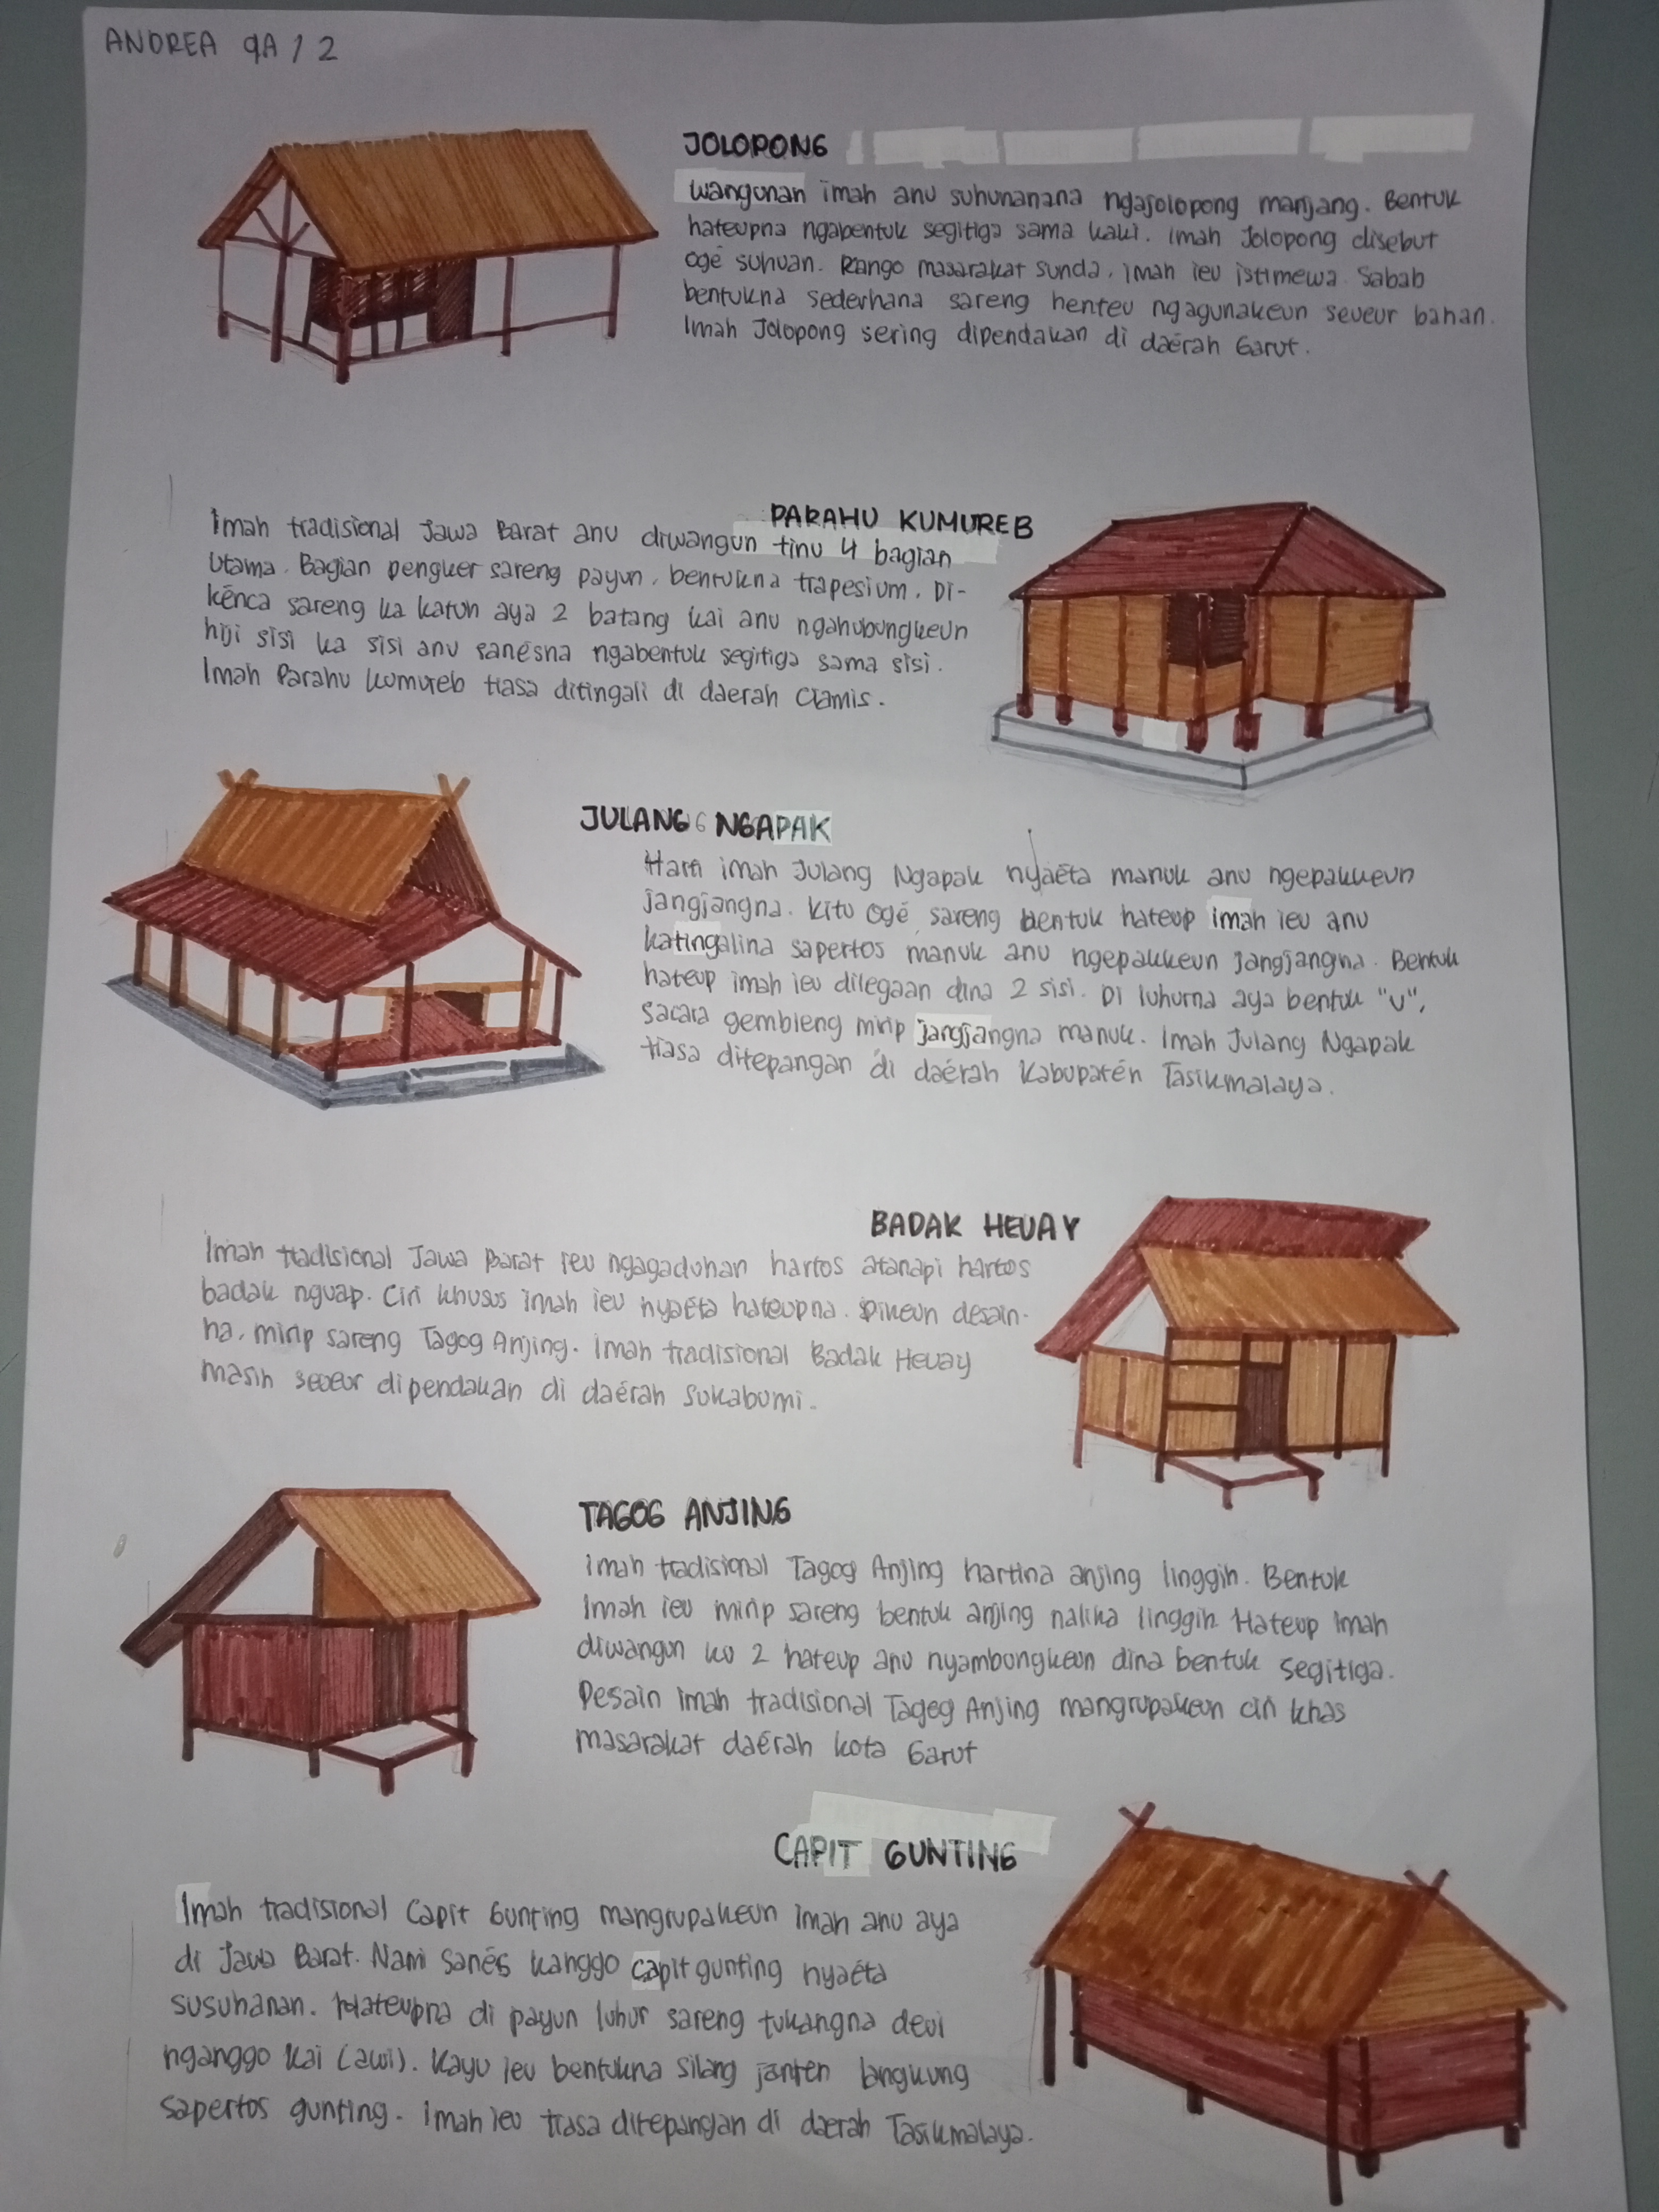 ANDREA 9A / 2
JOLOPONG
wangunan imah anu suhunanana ngajolopong manjang. Bentuk
hateupna ngabentuk segitiga sama kaki. Imah Jolopong disebut
ogé suhuan. Kango masarakat sunda, imah ieu istimewa. Sabab
bentukna sederhana sareng henteu ngagunakeun seueur bahan.
Imah Jolopong sering dipendakan di daérah Garut.
PARAHU KUMUREB
Imah tradisional Jawa Barat anu diwangun tinu 4 bagian
Utama. Bagian pengker sareng payun, bentukna trapesium. Di-
kénca sareng ka katuh aya 2 batang kai anu ngahubungkeun
hiji sisi ka sisi anu sanésna ngabentuk segitiga sama sisi.
Imah Parahu kumureb tiasa ditingali di daerah Ciamis.
JULANG NGAPAK
Harti imah Julang Ngapak nyaéta manuk anu ngepakkeun
jangjangna. Kitu ogé, sareng bentuk hateup imah ieu anu
katingalina sapertos manuk anu ngepakkeun jangjangna. Bentuk
hateup imah ieu dilegaan dina 2 sisi. Di luhurna aya bentuk "v",
sacara gembleng mirip jangjangna manuk. Imah Julang Ngapak
tiasa ditepangan di daérah Kabupatén Tasikmalaya.
BADAK HEUAY
Imah tradisional Jawa Barat ieu ngagaduhan hartos atanapi hartos
badak nguap. Ciri khusus imah ieu nyaéta hateupna. Dikeun desain-
na, mirip sareng Tagog Anjing. Imah tradisional Badak Heuay
masih seueur dipendakan di daérah Sukabumi.
TAGOG ANJING
Imah tradisional Tagog Anjing hartina anjing linggih. Bentuk
Imah ieu mirip sareng bentuk anjing nalika linggih. Hateup Imah
diwangun ku 2 hateup anu nyambungkeun dina bentuk segitiga.
Desain imah tradisional Tageg Anjing mangrupakeun ciri khas
masarakat daérah kota Garut
CAPIT GUNTING
Imah tradisional Capit Gunting mangrupakeun imah anu aya
di Jawa Barat. Nami sanés kanggo capit gunting nyaéta
susuhanan. Hateupna di payun luhur sareng tukangna deui
nganggo kai (awi). Kayu ieu bentukna silang janten langkung
sapertos gunting. Imah ieu tiasa ditepangan di daerah Tasikmalaya.